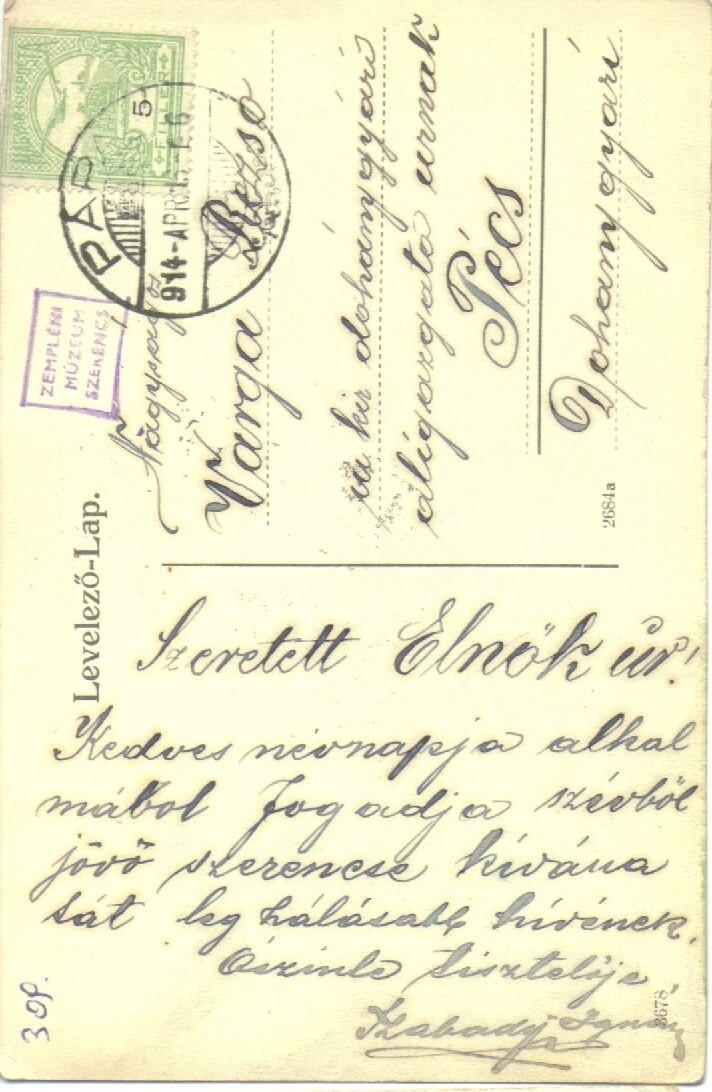 MAGYAR KIR. POSTA
5 FILLÉR
PÁPA
914 - APR
ZEMPLÉNI
MÚZEUM
SZERENCS
Levelező-Lap.
Varga Rezső
m kir dohánygyári
urnak
Pécs
Dohanygyári
2684a
Szeretett Elnök úr!
Kedves névnapja alkal
mából Fogadja szévből
jövő szerencse kívána
tát leg hálásabb hívének.
Öszinte tisztelője
Szabady Ignácz
3678
30f.